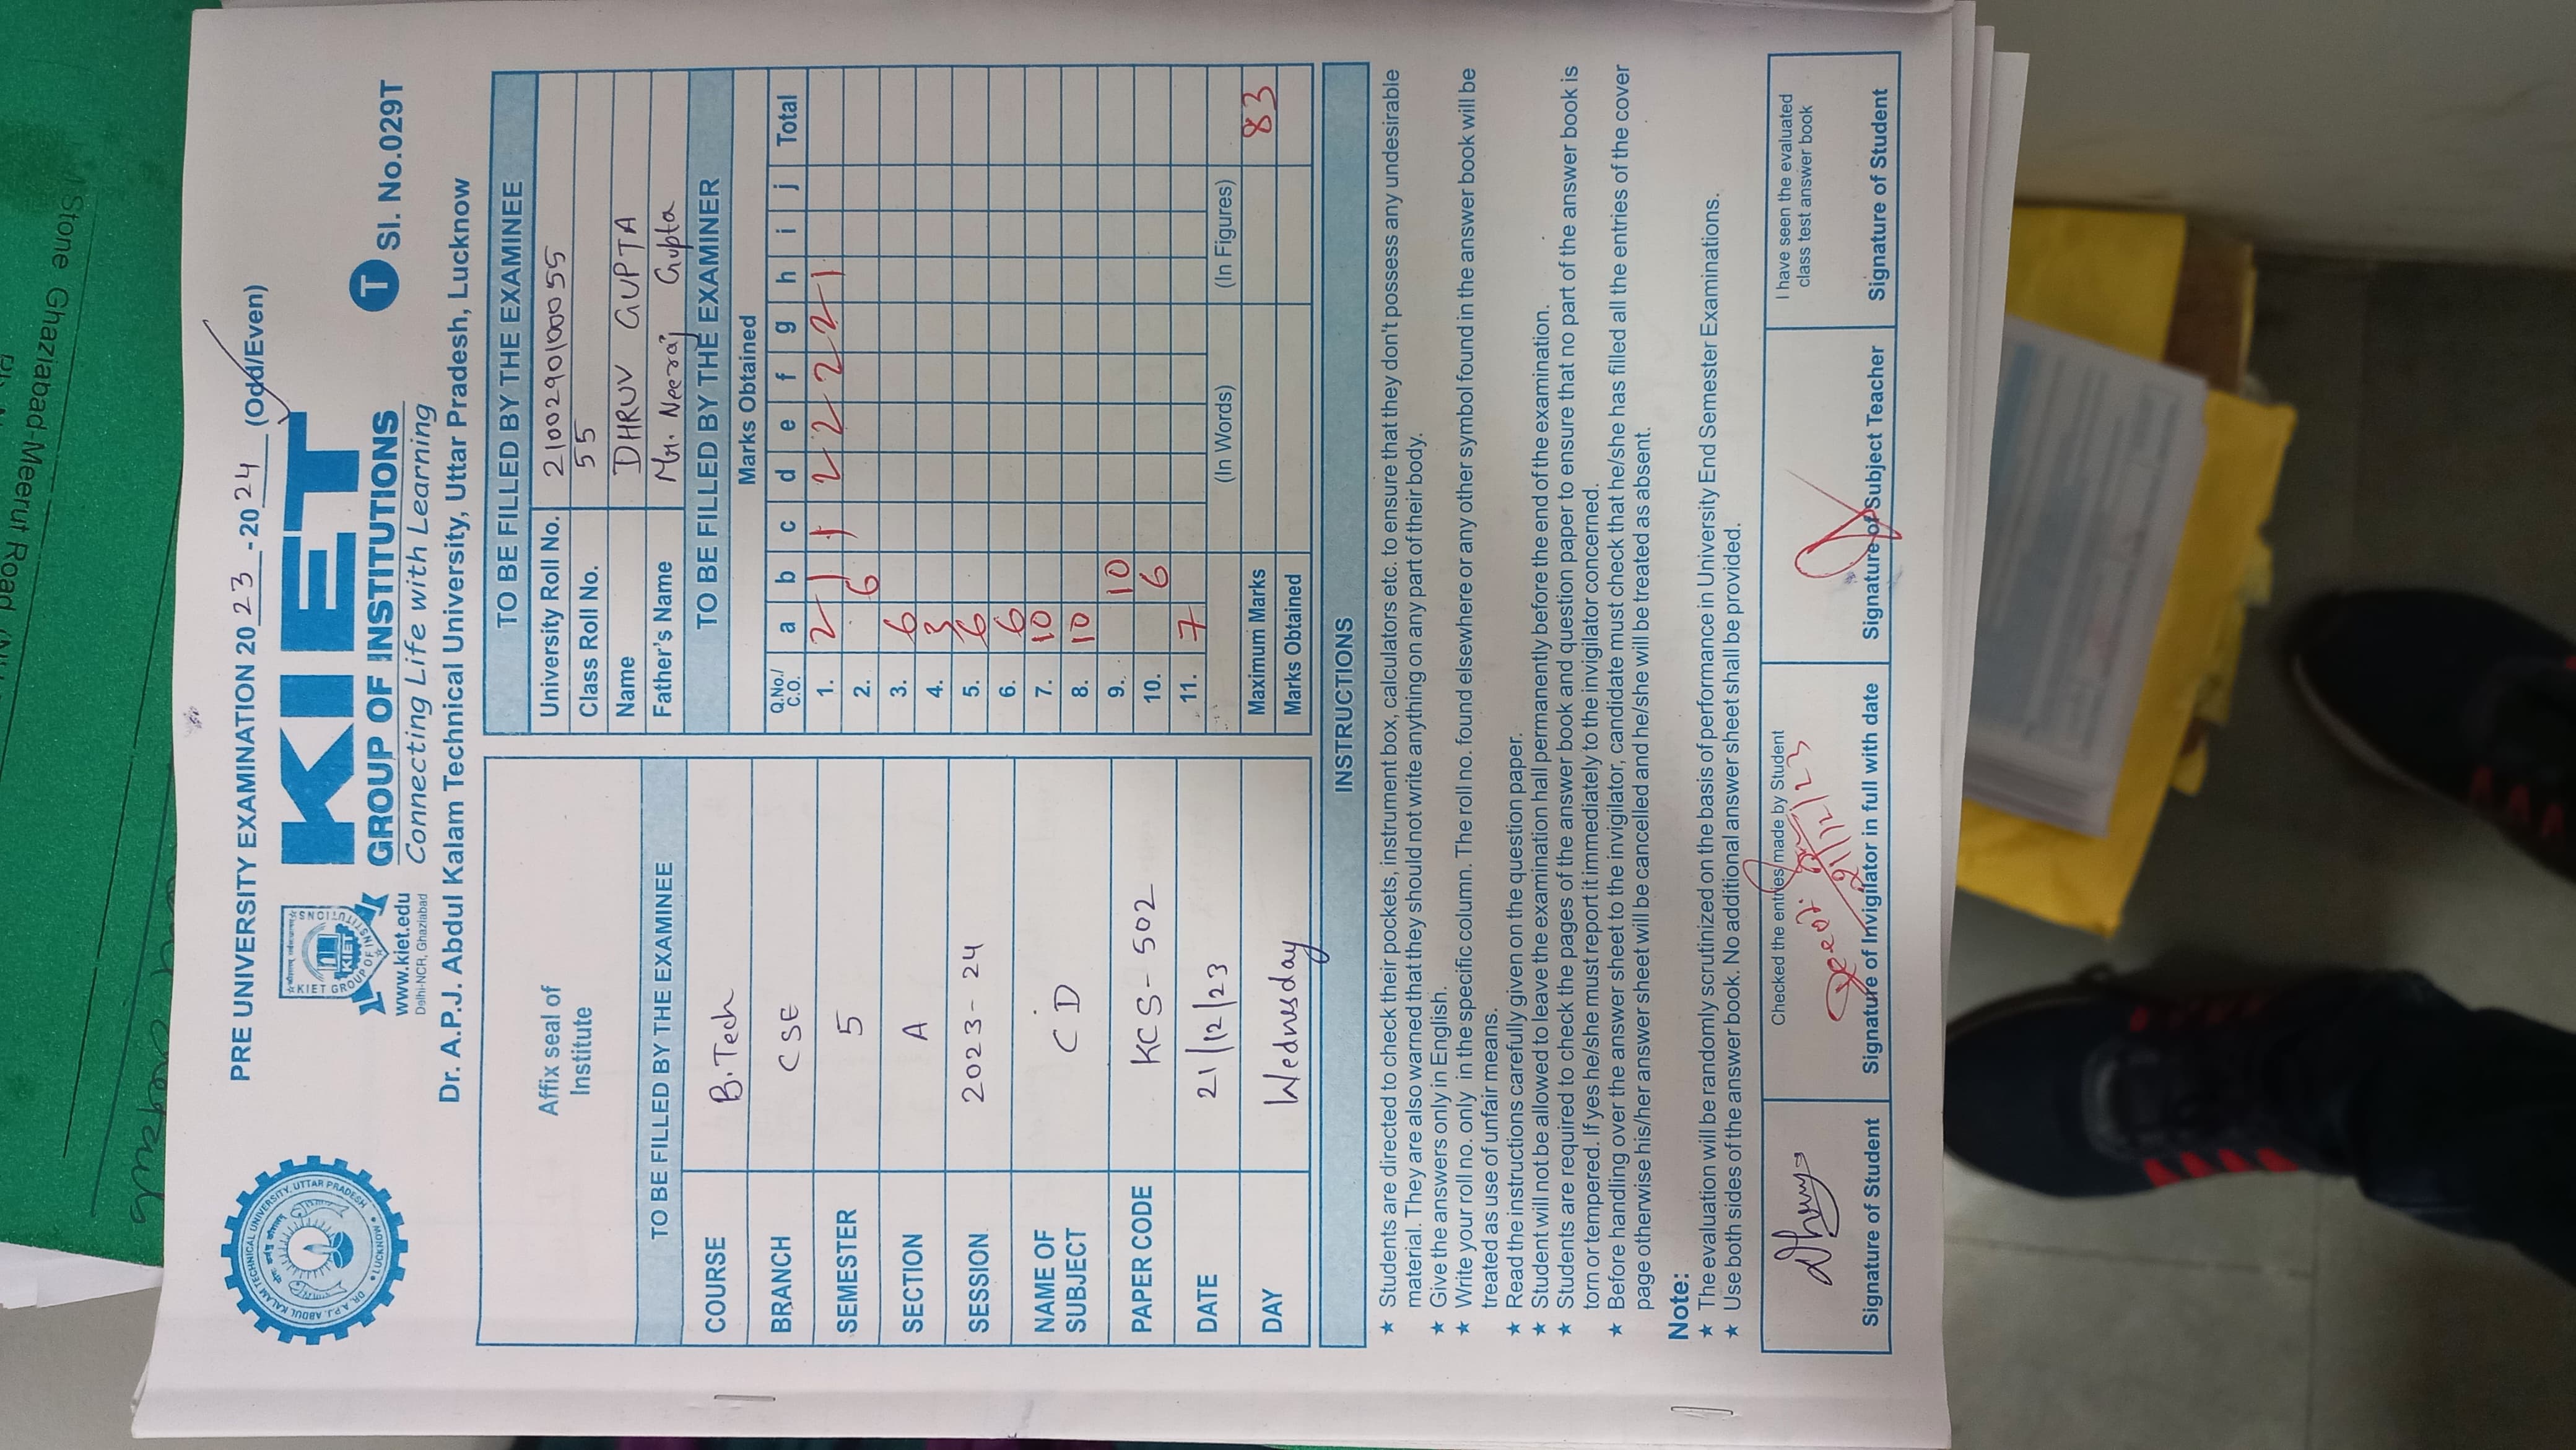 Stone Ghaziabad-Meerut Road
PRE UNIVERSITY EXAMINATION 2023-2024 (Odd/Even)
DR. A.P.J. ABDUL KALAM TECHNICAL UNIVERSITY, UTTAR PRADESH
LUCKNOW
KIET GROUP OF INSTITUTIONS
KIET
www.kiet.edu
Delhi-NCR, Ghaziabad
KIET
GROUP OF INSTITUTIONS
Connecting Life with Learning
T Sl. No.029T
Dr. A.P.J. Abdul Kalam Technical University, Uttar Pradesh, Lucknow
Affix seal of
Institute
TO BE FILLED BY THE EXAMINEE
COURSE B.Tech
BRANCH CSE
SEMESTER 5
SECTION A
SESSION 2023-24
NAME OF
SUBJECT CD
PAPER CODE KCS-502
DATE 21/12/23
DAY Wednesday
TO BE FILLED BY THE EXAMINEE
University Roll No. 2100290100055
Class Roll No. 55
Name DHRUV GUPTA
Father's Name Mr. Neeraj Gupta
TO BE FILLED BY THE EXAMINER
Marks Obtained
Q.No./
C.O. a b c d e f g h i j Total
1. 2 1 1 2 2 2 2 1
2. 6
3. 6
4. 3
5. 6
6. 6
7. 10
8. 10
9. 10
10. 6
11. 7
(In Words) (In Figures)
Maximum Marks 83
Marks Obtained
INSTRUCTIONS
★ Students are directed to check their pockets, instrument box, calculators etc. to ensure that they don't possess any undesirable
material. They are also warned that they should not write anything on any part of their body.
★ Give the answers only in English.
★ Write your roll no. only in the specific column. The roll no. found elsewhere or any other symbol found in the answer book will be
treated as use of unfair means.
★ Read the instructions carefully given on the question paper.
★ Student will not be allowed to leave the examination hall permanently before the end of the examination.
★ Students are required to check the pages of the answer book and question paper to ensure that no part of the answer book is
torn or tempered. If yes he/she must report it immediately to the invigilator concerned.
★ Before handling over the answer sheet to the invigilator, candidate must check that he/she has filled all the entries of the cover
page otherwise his/her answer sheet will be cancelled and he/she will be treated as absent.
Note:
★ The evaluation will be randomly scrutinized on the basis of performance in University End Semester Examinations.
★ Use both sides of the answer book. No additional answer sheet shall be provided.
Dhruv
Signature of Student
Checked the entries made by Student
21/12/23
Signature of Invigilator in full with date
Signature of Subject Teacher
I have seen the evaluated
class test answer book
Signature of Student